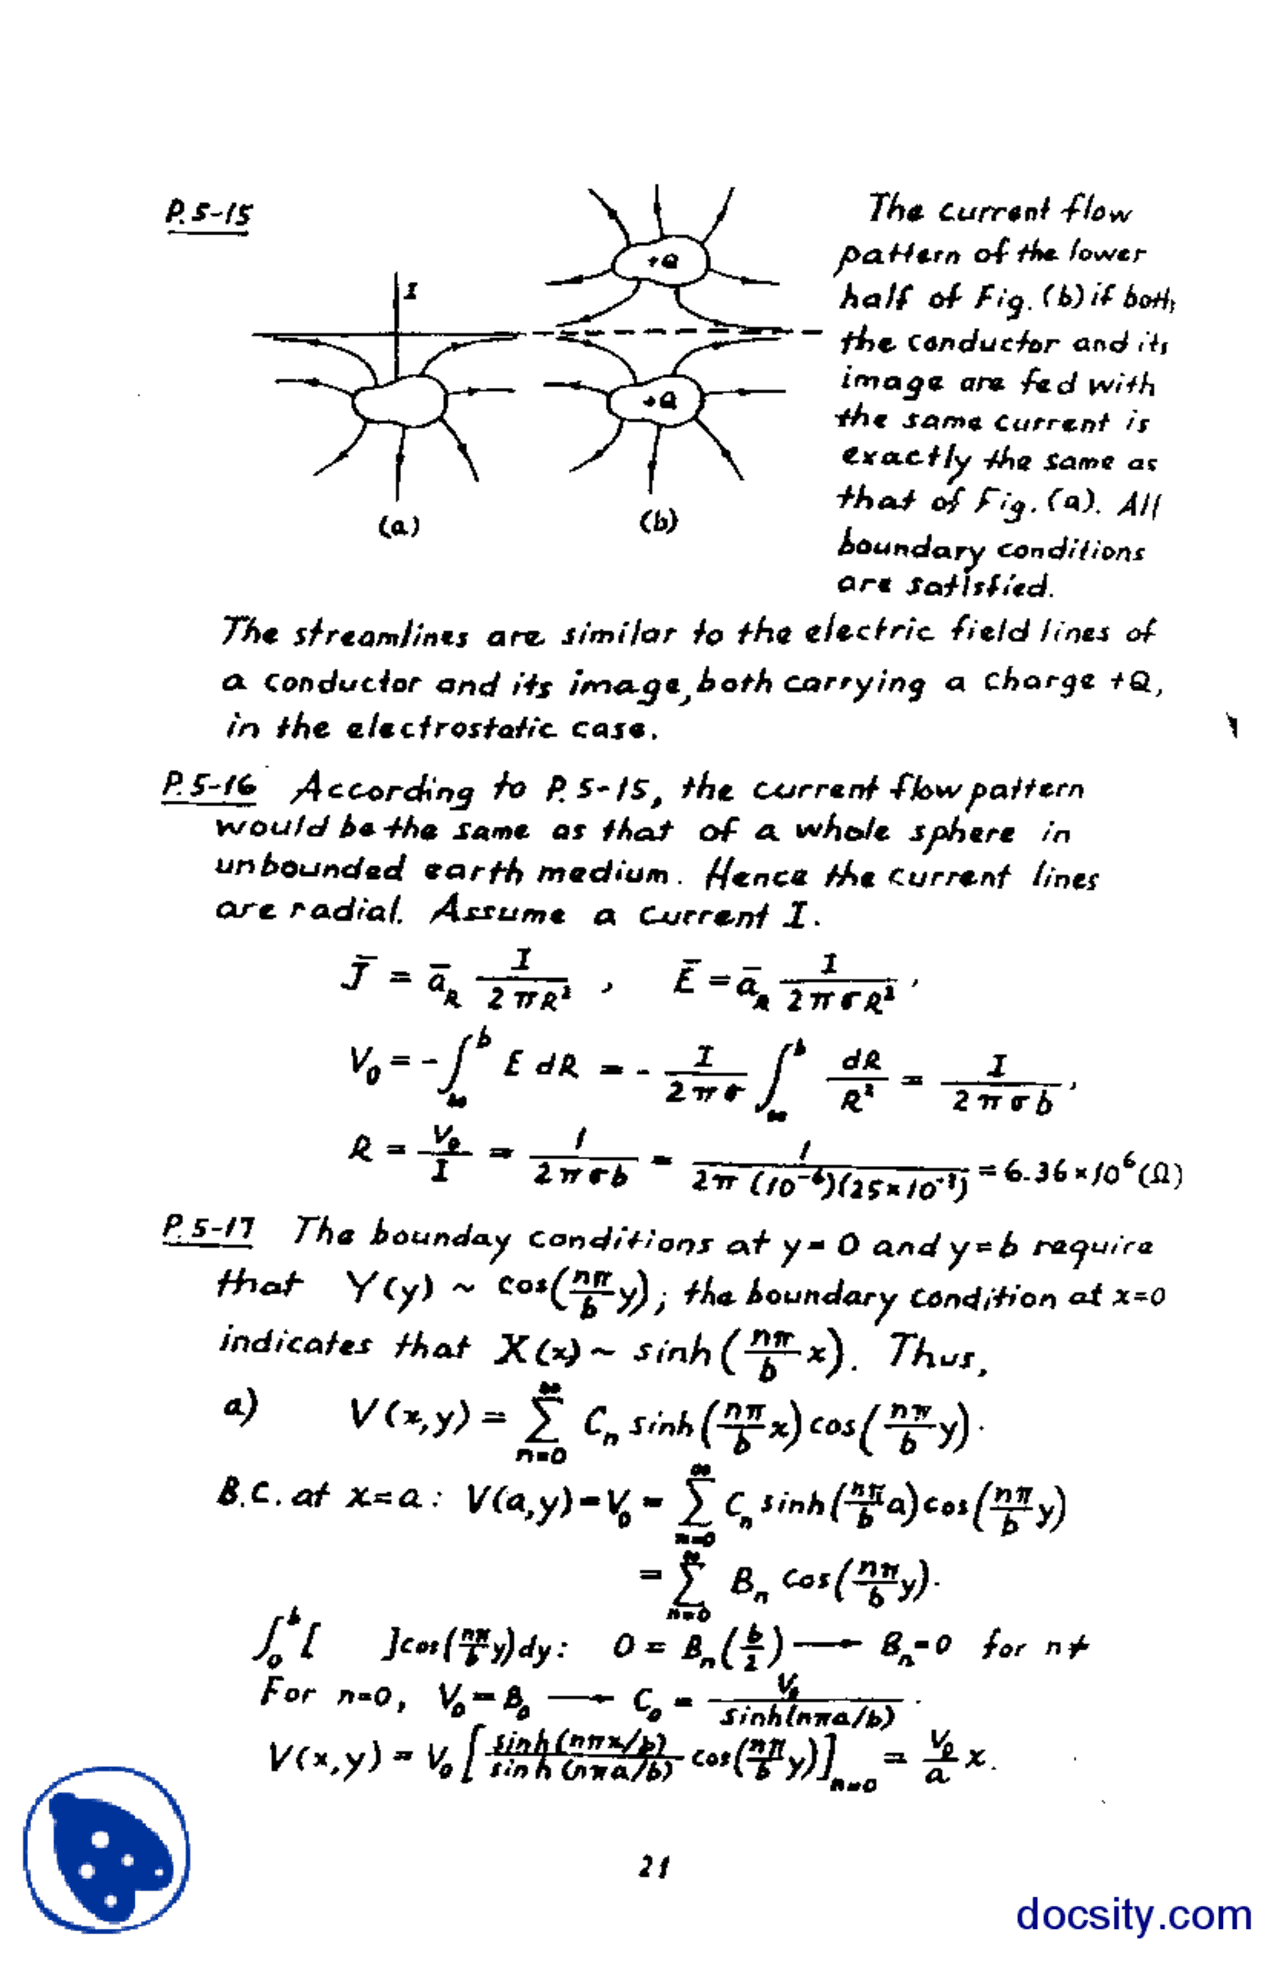 P.5-15
I
+Q
+Q
(a)
(b)
The current flow
pattern of the lower
half of Fig. (b) if both
the conductor and its
image are fed with
the same current is
exactly the same as
that of Fig. (a). All
boundary conditions
are satisfied.
The streamlines are similar to the electric field lines of
a conductor and its image, both carrying a charge +Q,
in the electrostatic case.
P.5-16 According to P.5-15, the current flow pattern
would be the same as that of a whole sphere in
unbounded earth medium. Hence the current lines
are radial. Assume a current I.
J̄ = ā_R I/(2πR²) , Ē = ā_R I/(2πσR²) ,
V₀ = -∫_∞^b E dR = - I/(2πσ) ∫_∞^b dR/R² = I/(2πσb) ,
R = V₀/I = 1/(2πσb) = 1/(2π(10⁻⁶)(25×10⁻³)) = 6.36×10⁶ (Ω)
P.5-17 The bounday conditions at y=0 and y=b require
that Y(y) ~ cos(nπ/b y); the boundary condition at x=0
indicates that X(x) ~ sinh(nπ/b x). Thus,
a) V(x,y) = Σ_{n=0}^∞ C_n sinh(nπ/b x) cos(nπ/b y).
B.C. at x=a: V(a,y) = V₀ = Σ_{n=0}^∞ C_n sinh(nπ/b a) cos(nπ/b y)
= Σ_{n=0}^∞ B_n cos(nπ/b y).
∫_0^b [ ] cos(nπ/b y) dy: 0 = B_n(b/2) → B_n = 0 for n≠
For n=0, V₀ = B₀ → C₀ = V₀/sinh(nπa/b) .
V(x,y) = V₀ [sinh(nπx/b)/sinh(nπa/b) cos(nπ/b y)]_{n=0} = V₀/a x.
21
docsity.com